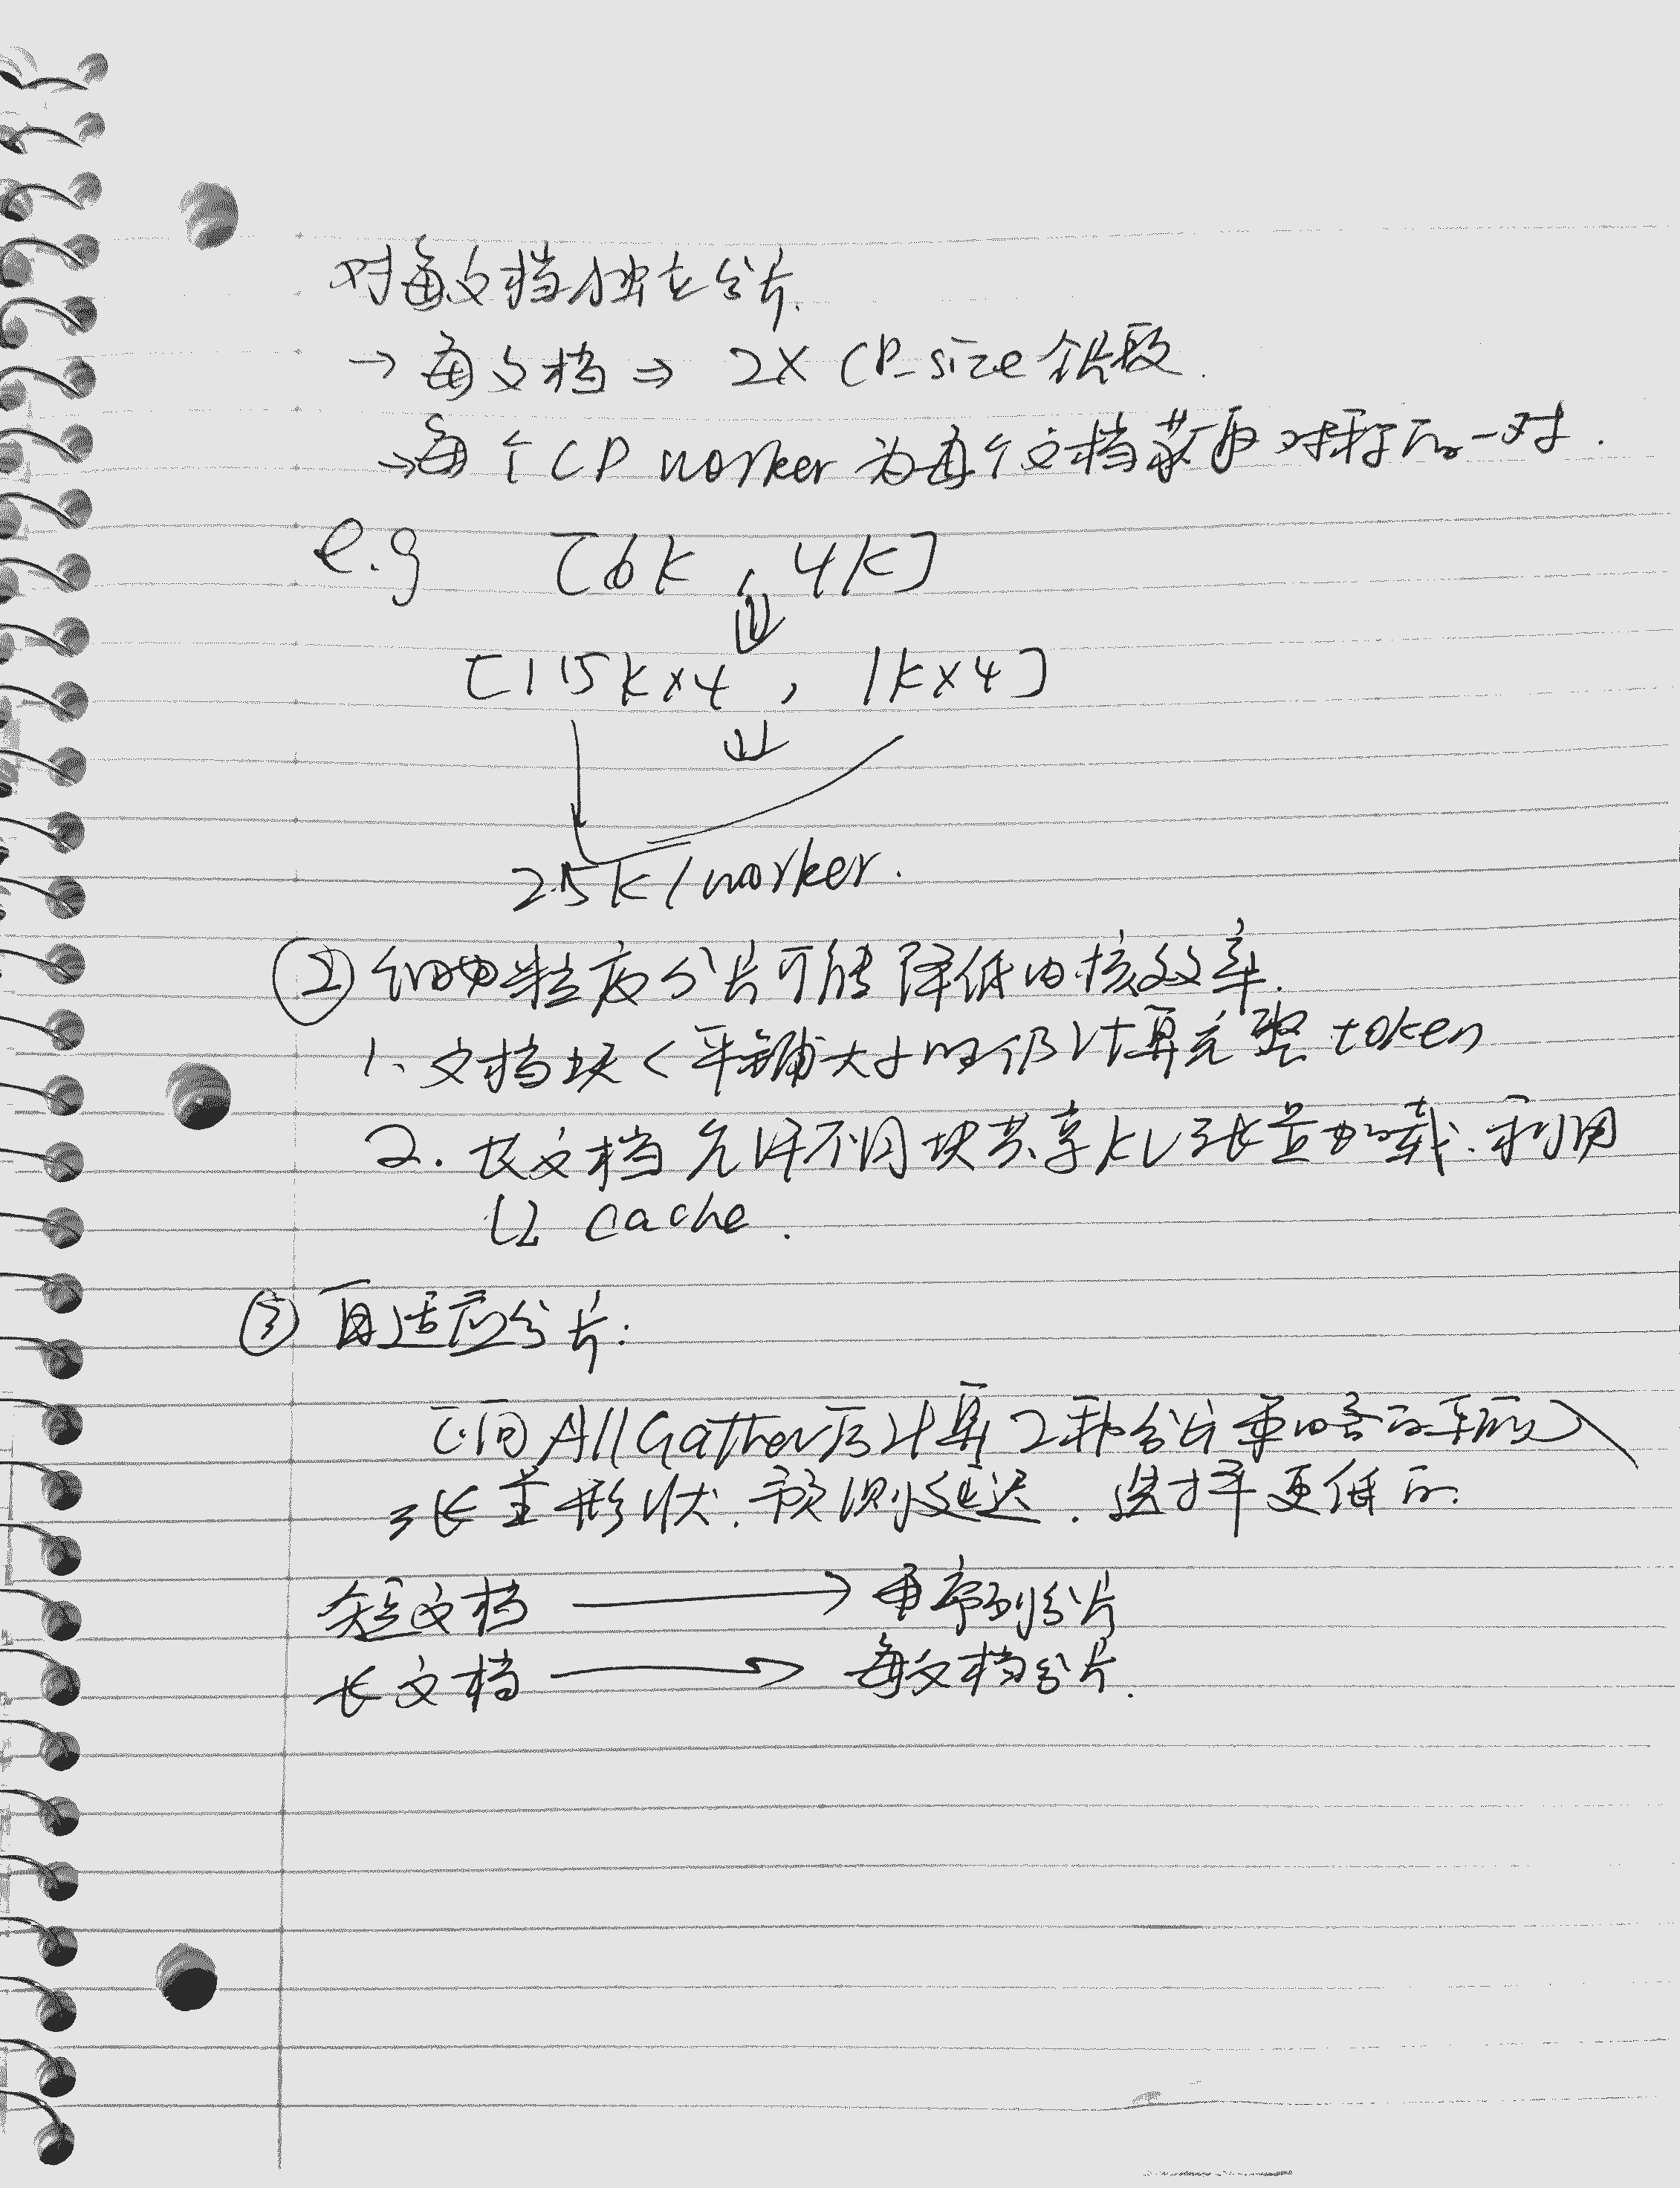 对每文档独立分片.
→ 每文档 ⇒ 2X CP_size 个片段.
→每个CP worker 为每个文档获取对称的一对.
e.g [6k , 4k]
⇓
[1.5k×4 , 1k×4]
⇓
2.5k/worker.
② 细粒度分片可能降低内核效率.
1、文档块<平铺大小时仍计算完整 token
2. 长文档允许不同块共享KV张量加载.利用
L2 cache.
③ 自适应分片:
AllGather后计算2种分片策略的
张量形状.预测延迟.选择更低的.
短文档 → 每序列分片
长文档 → 每文档分片.